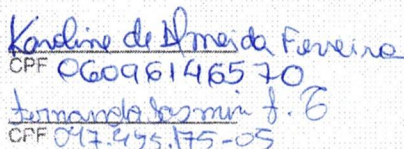 Karoline de Almeida Ferreira
CPF 06096146570
Fernanda Iasmin f.
CPF 047.495.175-05